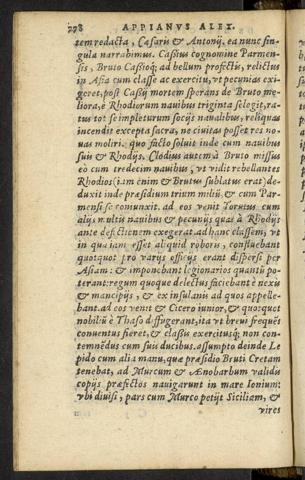 278 APPIANVS ALEX.
tem redacta, Cæsaris & Antonij, ea nunc sin-
gula narrabimus. Cassius cognomine Parmen-
sis, Bruto Cassioq; ad bellum profectis, relictus
in Asia cum classe ac exercitu, vt pecunias exi-
geret, post Cassij mortem sperans de Bruto me-
liora, è Rhodiorum nauibus triginta selegit, ra-
tus tot se impleturum socijs naualibus, reliquas
incendit excepta sacra, ne ciuitas posset res no-
uas moliri. quo facto soluit inde cum nauibus
suis & Rhodijs. Clodius autem à Bruto missus
eò cum tredecim nauibus, vt vidit rebellantes
Rhodios (iam enim & Brutus sublatus erat) de-
duxit inde præsidium trium miliū, & cum Par-
mensi se comunxit. ad eos venit Torutus cum
alijs multis nauibus & pecunijs quas à Rhodijs
ante defectionem exegerat. ad hanc classem, vt
in qua iam esset aliquid roboris, confluebant
quotquot pro varijs officijs erant dispersi per
Asiam: & imponebant legionarios quantū po-
terant: regum quoque delectus faciebant è nexu
& mancipijs, & ex insulanis ad quos appelle-
bant. ad eos venit & Cicero iunior, & quotquot
nobiliū è Thaso diffugerant, ita vt breui frequēs
conuentus fieret, & classis exercitusq; non con-
temnēdus cum suis ducibus. assumpto deinde Le
pido cum alia manu, quæ præsidio Bruti Cretam
tenebat, ad Murcum & Ænobarbum validis
copijs præfectos nauigarunt in mare Ionium:
vbi diuisi, pars cum Murco petijt Siciliam, &
vires